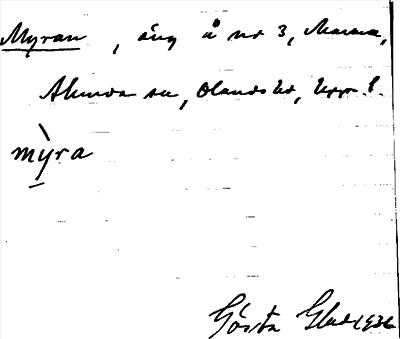 Myran, äng å nr 3, Marma,
Alunda sn, Olands hd, Uppl.
mỳra
Gösta Glad 1936